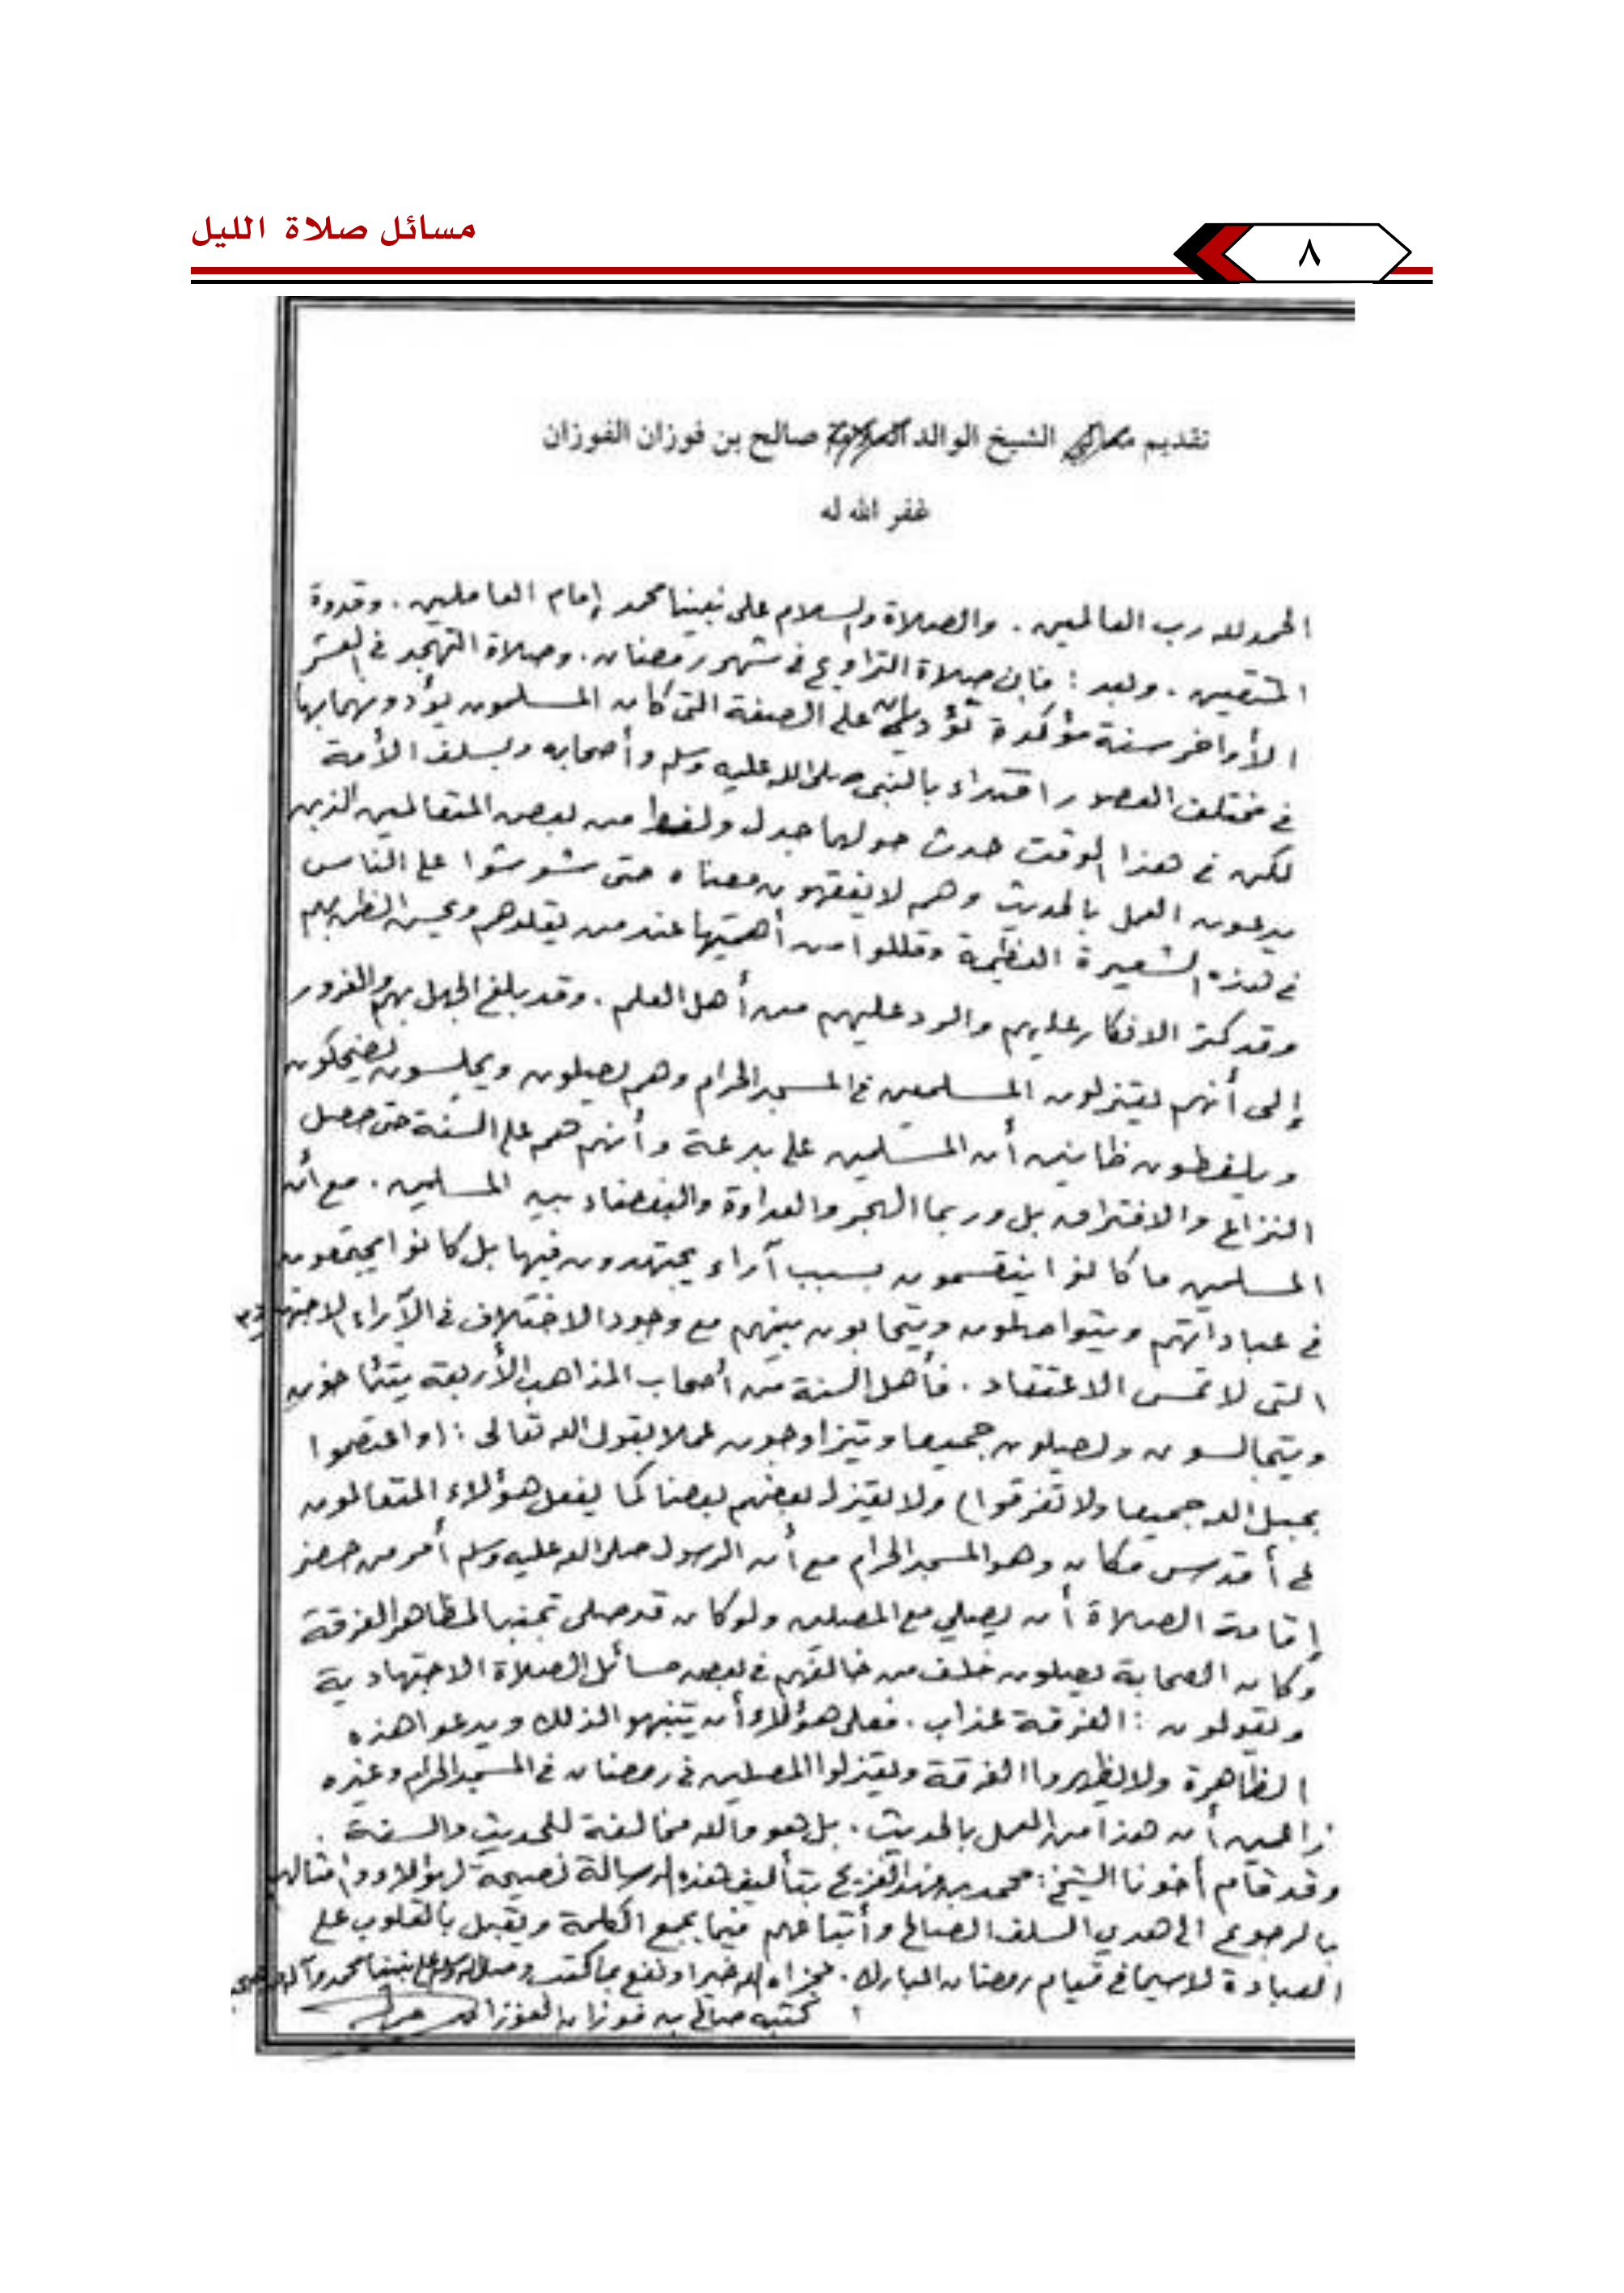 مسائل صلاة الليل
٨
تقديم معالي الشيخ الوالد العلامة صالح بن فوزان الفوزان
غفر الله له
الحمد لله رب العالمين . والصلاة والسلام على نبينا محمد إمام العاملين . وقدوة
المتقين . وبعد : فإن صلاة التراويح في شهر رمضان . وصلاة التهجد في العشر
الأواخر سنة مؤكدة تؤديان على الصفة التي كان المسلمون يؤدونهما بها
في مختلف العصور اقتداء بالنبي صلى الله عليه وسلم وأصحابه وبسلف الأمة
لكن في هذا الوقت حدث حولهما جدل ولغط من بعض المتعالمين الذين
يدعون العمل بالحديث وهم لا يفقهون معناه حتى شوشوا على الناس
في هذه الشعيرة العظيمة وقللوا من أهميتها عند من يقلدهم ويحسن الظن بهم
وقد كثر الانكار عليهم والرد عليهم من أهل العلم . وقد بلغ الجهل بهم والغرور
إلى أنهم يعتزلون المسلمين في المسجد الحرام وهم يصلون ويجلسون يضحكون
ويلغطون ظانين أن المسلمين على بدعة وأنهم هم على السنة حتى حصل
النزاع والافتراق بل وربما الهجر والعداوة والبغضاء بين المسلمين . مع أن
المسلمين ما كانوا ينقسمون بسبب آراء يجتهدون فيها بل كانوا يجتمعون
في عباداتهم ويتواصلون ويتحابون بينهم مع وجود الاختلاف في الآراء الاجتهادية
التي لا تمس الاعتقاد . فأهل السنة من أصحاب المذاهب الأربعة يتآخون
ويتجالسون ويصلون جميعا ويتزاوجون عملا بقول الله تعالى : (واعتصموا
بحبل الله جميعا ولا تفرقوا) ولا يعتزل بعضهم بعضا كما يفعل هؤلاء المتعالمون
في أقدس مكان وهو المسجد الحرام مع أن الرسول صلى الله عليه وسلم أمر من حضر
إقامة الصلاة أن يصلي مع المصلين ولو كان قد صلى تجنبا لمظاهر الفرقة
وكان الصحابة يصلون خلف من خالفهم في بعض مسائل الصلاة الاجتهادية
ويقولون : الفرقة عذاب . فعلى هؤلاء أن يتنبهوا لذلك ويدعوا هذه
الظاهرة ولا يظهروا الفرقة ويعتزلوا المصلين في رمضان في المسجد الحرام وغيره
زاعمين أن هذا من العمل بالحديث . بل هو والله مخالفة للحديث والسنة .
وقد قام أخونا الشيخ : محمد بن فهد الفريح بتأليف هذه الرسالة نصيحة لهؤلاء وأمثالهم
بالرجوع إلى هدي السلف الصالح وأتباعهم فيما يجمع الكلمة ويقبل بالقلوب على
العبادة لاسيما في قيام رمضان المبارك . فجزاه الله خيرا ونفع بما كتب وصلى الله وسلم على نبينا محمد وآله وصحبه
كتبه صالح بن فوزان الفوزان